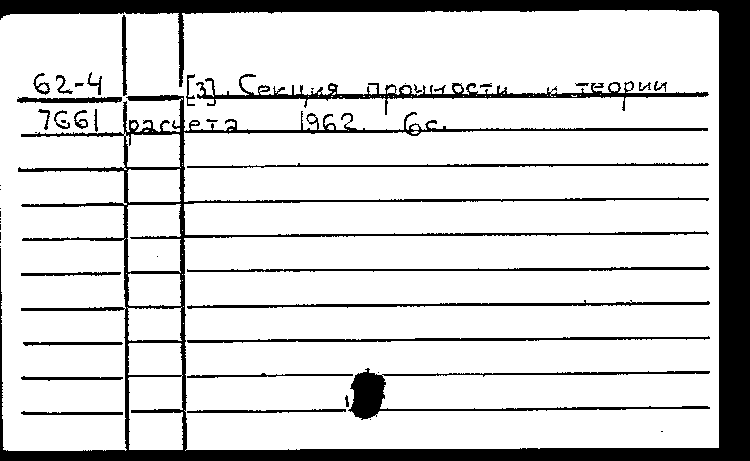 62-4 [3]. Секция прочности и теории
7661 расчета 1962. 6с.